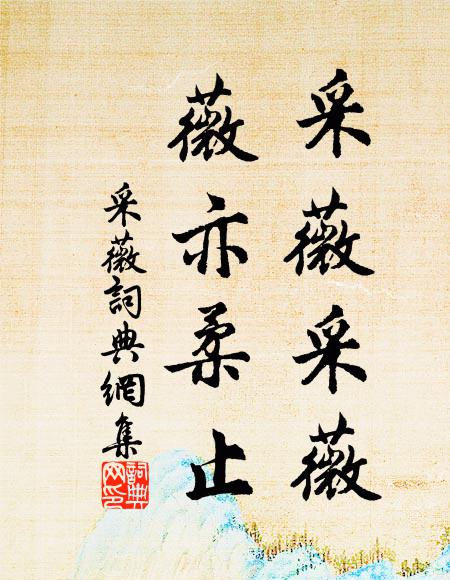 采薇采薇
薇亦柔止
采薇詞典網集
詞典網印